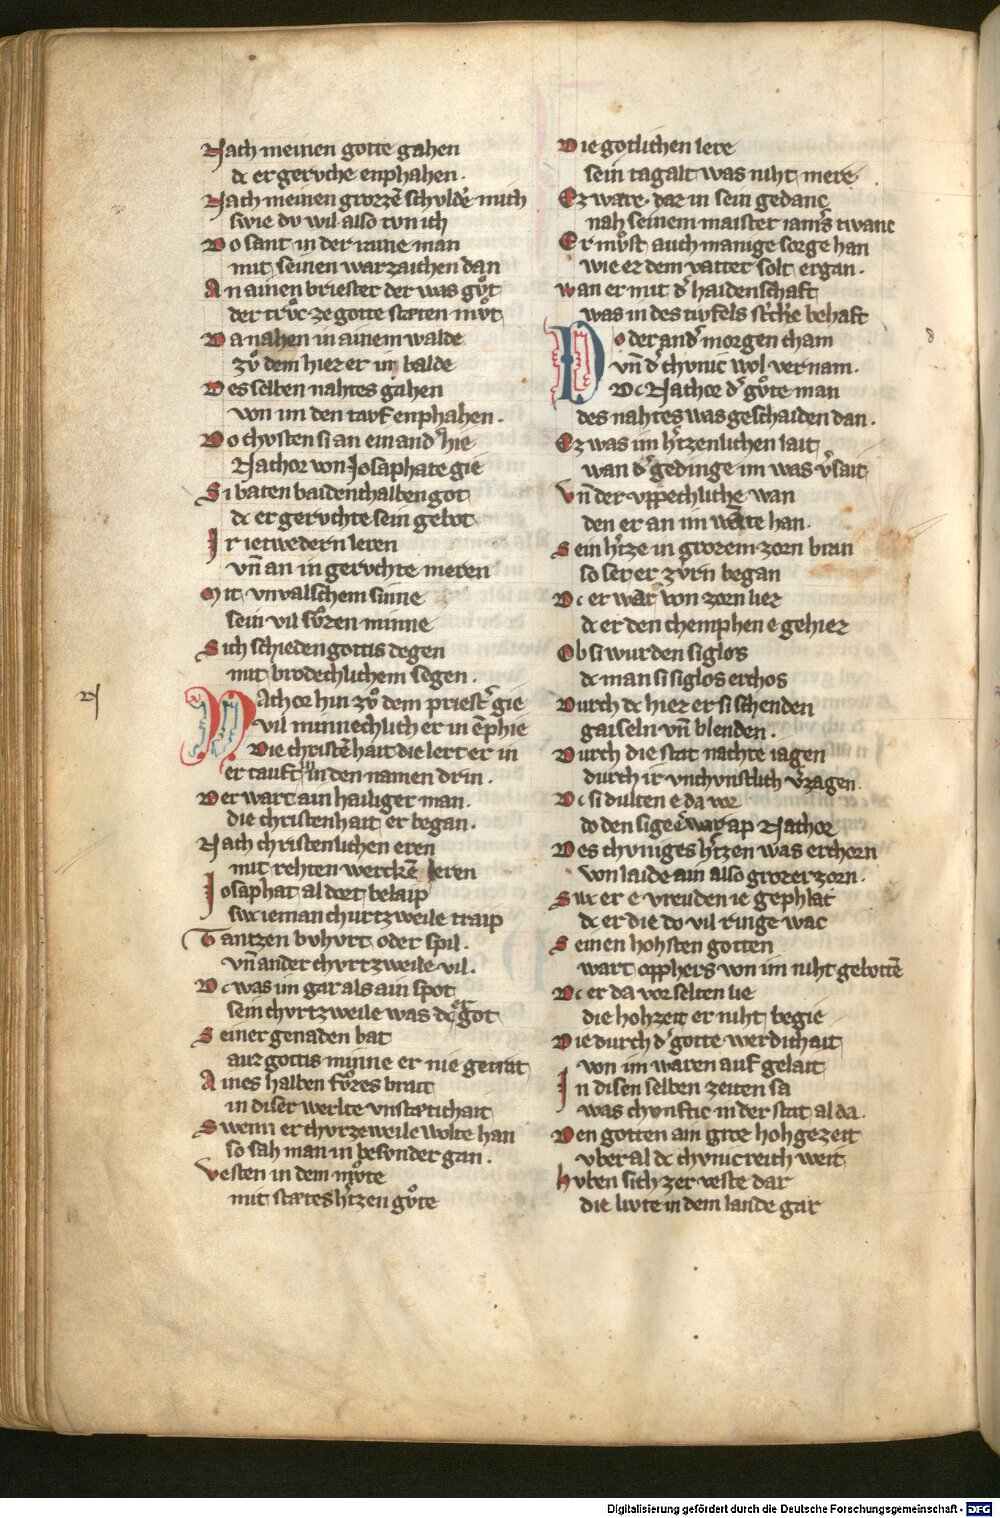 Nach meinen gotte gahen
dc er gervche enphahen.
Nach meinen grorzē schvldē mich
swie dv wil also tvn ich
Do sant in der raine man
mit seinen warzaichen dan
An ainen briester der was gvͦt
der trvͦc ze gotte stæten mvͦt
Da nahen in ainem walde
zvͦ dem hiez er in balde
Des selben nahtes gahen
von im den tavf enphahen.
Do chvsten si an einandʼ hie
Nachor von Josaphate gie
Si baten baidenthalben got
dc er gervchte sein gebot
Ir ietwedern leren
vn̄ an in gervchte meren
Mit vnvalschem sinne
sein vil svͦzen minne
Sich schieden gottis degen
mit brvdechlichem segen.
Nachor hin zvͦ dem priestʼ gie
vil minnechlich er in ēphie
Die christēhait die lert er in
er tauft in in den namen drin.
Der wart ain hailiger man.
die christenhait er began.
Nach christenlichen eren
mit rehten werckē leren
Josaphat al dort belaip
swc ieman churtzweile traip
Tantzen bvhvrt oder spil.
vn̄ ander chvrtzweile vil.
Dc was im gar als ain spot
sein chvrtzweile was dc er got
Seiner genaden bat
auz gottis minne er nie getrat
Aines halben fvͦzes brait
in diser werlte vnstætichait
Swenn er chvrzeweile wolte han
so sah man in besvnder gan.
Vesten in dem mvͦte
mit stætes hʼtzen gvͦte
Die gotlichen lere
sein tagalt was niht mere
Ez wære dar in sein gedanc
nah seinem maister iamʼs twanc
Er mvͦst auch manige sorge han
wie ez dem vatter solt ergan.
wan er mit dʼ haidenschaft
was in des tivfels stʼcke behaft
Do der andʼ morgen cham
vn̄ dʼ chvnic wol vernam.
Dc Nachor dʼ gvͦte man
des nahtes was geschaiden dan.
Ez was im hʼtzenlichen lait
wan dʼ gedinge im was vʼsait
Vn̄ der vppechliche wan
den er an im wolte han.
Sein hʼtze in grozem zorn bran
so ser er zvͤrn began
Dc er war von zorn hiez
dc er den chemphen e gehiez
Ob si wurden siglos
dc man si siglos erchos
Durch dc hiez er si schenden
gaiseln vn̄ blenden.
Durch die stat nachte iagen
durch ir vnchvnstlich vʼzagen
Dc si dulten e da vor
do den sige erwarp Nachor
Des chvniges hʼtzen was erchorn
von laide ain also grozer zorn.
Swc er e vreuden ie gephlac
dc er die do vil ringe wac
Seinen hohsten gotten
wart opphers von im niht gebottē
Dc er da vor selten lie
die hohzeit er niht begie
Die durch dʼ gotte werdichait
von im waren auf gelait
In disen selben zeiten sa
was chvnftic in der stat al da.
Den gotten ain groz hohgezeit
vber al dc chvnicreich weit
Hvben sich zer veste dar
die livte in dem lande gar
Digitalisierung gefördert durch die Deutsche Forschungsgemeinschaft - DFG